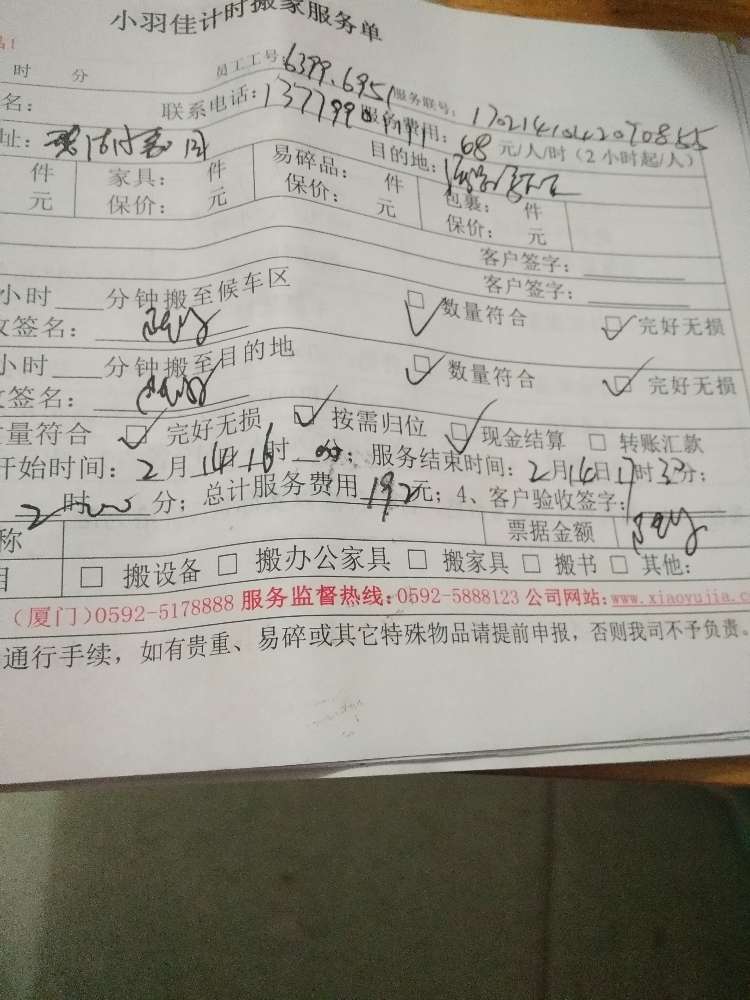 小羽佳计时搬家服务单
时 分 员工工号: 6399.6951 服务联号: 1702141042070855
名: 联系电话: 137799 服务费用: 68 元/人/时（2小时起/人）
址: 目的地:
件 家具: 件 易碎品: 件 包裹: 件
元 保价: 元 保价: 元 保价: 元
客户签字:
客户签字:
小时 分钟搬至候车区 数量符合 完好无损
收签名:
小时 分钟搬至目的地 数量符合 完好无损
签名:
量符合 完好无损 按需归位 现金结算 转账汇款
开始时间: 2月14日16时 分; 服务结束时间: 2月14日17时33分;
2时 分; 总计服务费用192元; 4、客户验收签字:
称 票据金额
目 搬设备 搬办公家具 搬家具 搬书 其他:
(厦门)0592-5178888 服务监督热线: 0592-5888123 公司网站: www.xiaoyujia.c
通行手续，如有贵重、易碎或其它特殊物品请提前申报，否则我司不予负责。